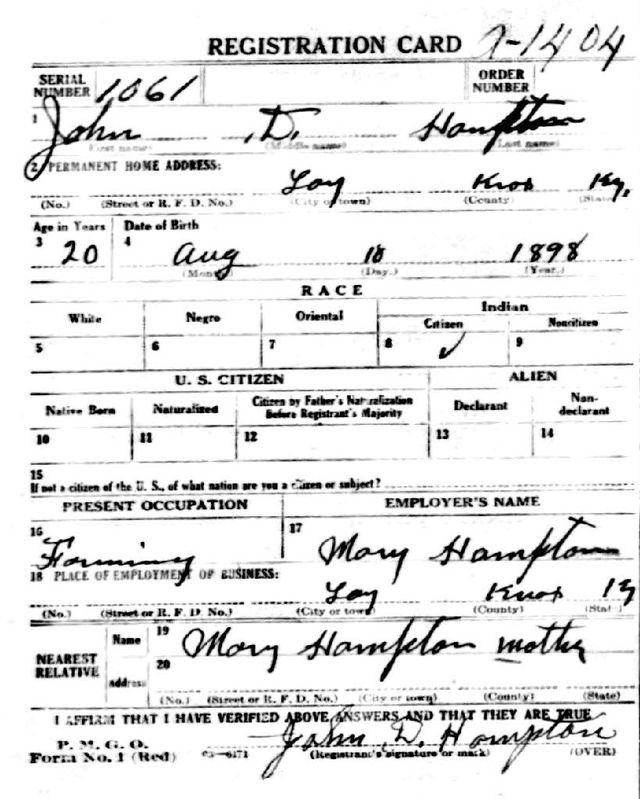 REGISTRATION CARD 1-1404
SERIAL NUMBER 1061 ORDER NUMBER
1 John D. Hampton
(First name) (Middle name) (Last name)
2 PERMANENT HOME ADDRESS:
Loy Knox Ky.
(No.) (Street or R. F. D. No.) (City or town) (County) (State)
Age in Years Date of Birth
3 20 4 Aug 18 1898
(Month) (Day.) (Year.)
RACE
White Negro Oriental Indian
Citizen Noncitizen
5 6 7 8 ✓ 9
U. S. CITIZEN ALIEN
Native Born Naturalized Citizen by Father's Naturalization Before Registrant's Majority Declarant Non-declarant
10 11 12 13 14
15
If not a citizen of the U. S., of what nation are you a citizen or subject?
PRESENT OCCUPATION EMPLOYER'S NAME
16 Farming 17 Mary Hampton
18 PLACE OF EMPLOYMENT OF BUSINESS:
Loy Knox Ky
(No.) (Street or R. F. D. No.) (City or town) (County) (State)
NEAREST RELATIVE Name 19 Mary Hampton mother
address 20
(No.) (Street or R. F. D. No.) (City or town) (County) (State)
I AFFIRM THAT I HAVE VERIFIED ABOVE ANSWERS AND THAT THEY ARE TRUE
P. M. G. O.
Form No. 1 (Red) 03-6171 John D. Hampton
(Registrant's signature or mark) (OVER)